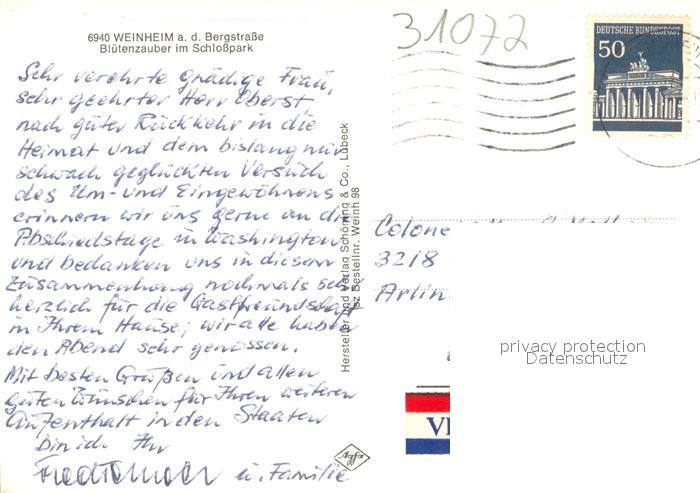 6940 WEINHEIM a. d. Bergstraße
Blütenzauber im Schloßpark
31072
DEUTSCHE BUNDESPOST
50
Sehr verehrte gnädige Frau,
sehr geehrter Herr Oberst,
nach guter Rückkehr in die
Heimat und dem bislang nur
schwach geglückten Versuch
des Um- und Eingewöhnens
erinnern wir uns gerne an die
Abschiedstage in Washington
und bedanken uns in diesem
Zusammenhang nochmals sehr
herzlich für die Gastfreundschaft
in Ihrem Hause; wir alle haben
den Abend sehr genossen.
Mit besten Grüßen und allen
guten Wünschen für Ihren weiteren
Aufenthalt in den Staaten
bin ich Ihr
u. Familie
Hersteller und Verlag Schöning & Co., Lübeck
sz Bestellnr. Weinh 98
Agfa
Colone
3218
Arlin
privacy protection
Datenschutz